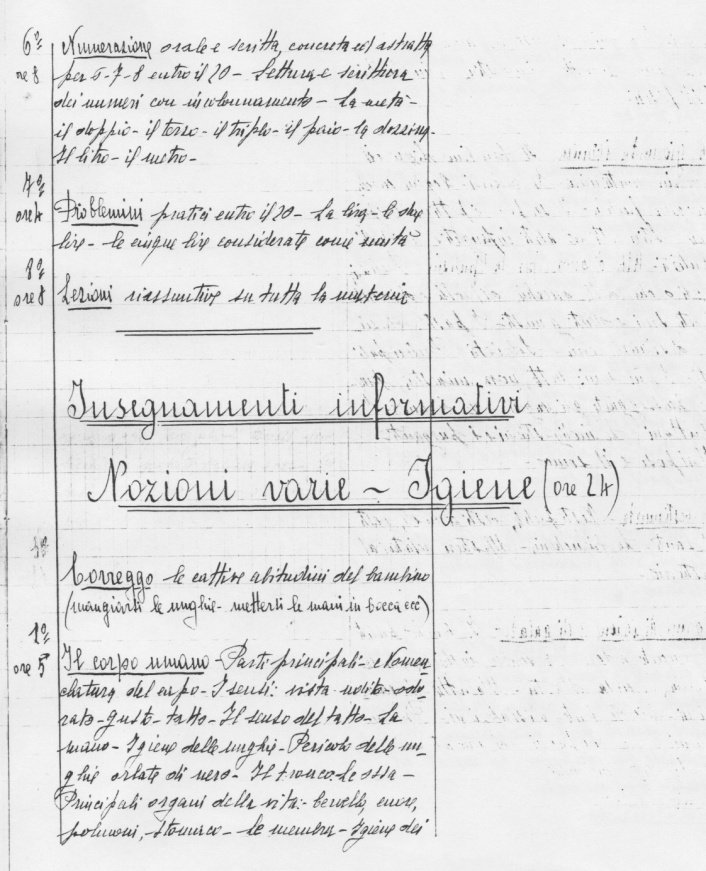 6º Numerazione orale e scritta, concreta ed astratta
ore 8 per 6-7-8 entro il 20 - Lettura e scrittura
dei numeri con incolonnamento - La metà -
il doppio - il terzo - il triplo - il paio - la dozzina
Il litro - il metro -
7º
ore 4 Problemini pratici entro il 20 - La lira - le due
lire - le cinque lire considerate come unità
8º
ore 8 Lezioni riassuntive su tutta la materia
Insegnamenti informativi
Nozioni varie ~ Igiene (ore 24)
1º
Correggo le cattive abitudini del bambino
(mangiarsi le unghie - mettersi le mani in bocca ecc)
1º
ore 5 Il corpo umano - Parti principali - e Nomen
clatura del capo - I sensi: vista - udito - odo
rato - gusto - tatto - Il senso del tatto - La
mano - Igiene delle unghie - Pericolo delle un
ghie orlate di nero - Il tronco. Le ossa -
Principali organi della vita: - cervello, cuore,
polmoni, stomaco - le membra - Igiene dei